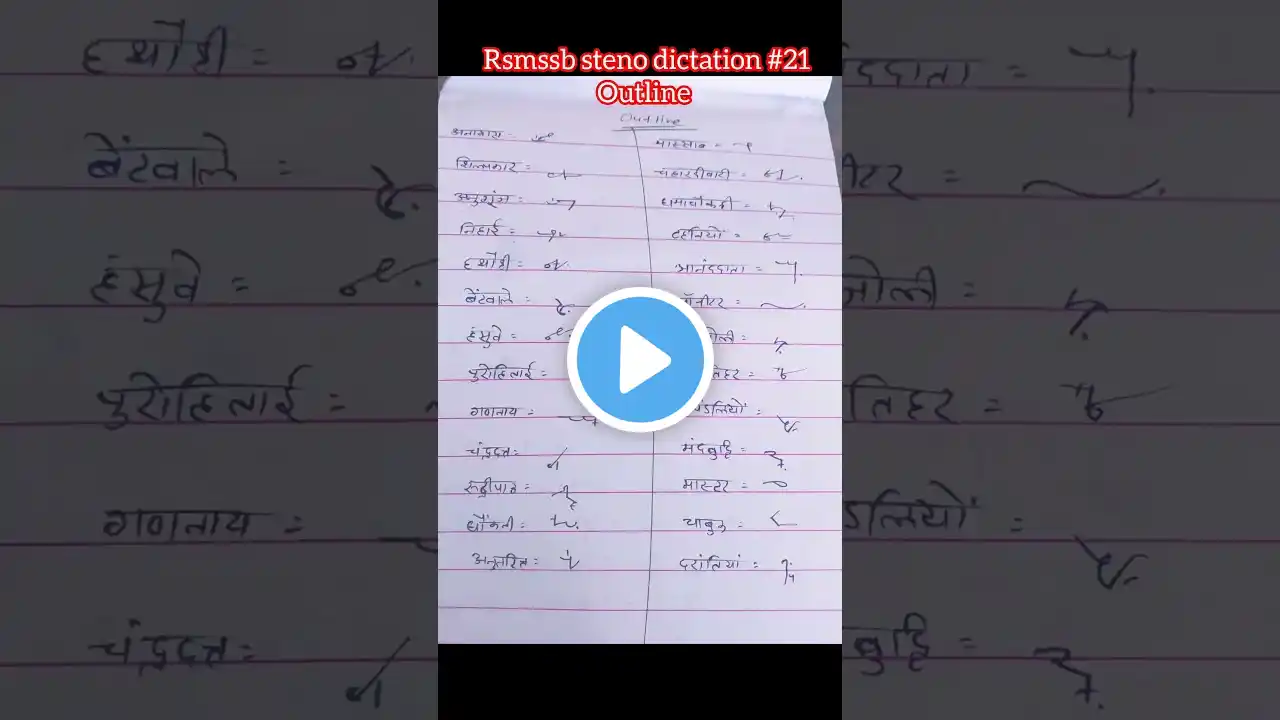 Rsmssb steno dictation #21
Outline
Outline
अनायास =
शिल्पकार =
निहाई =
हथौड़ी =
बेंटवाले =
हंसुवे =
पुरोहिताई =
गणनाय =
चंद्रदत्त =
धौंकनी =
अनुत्तरित =
मास्साब =
चहारदीवारी =
धमाचौकड़ी =
टहनियों =
आनंददाता =
मंदबुद्धि =
मास्टर =
चाबुक =
दरांतियां =